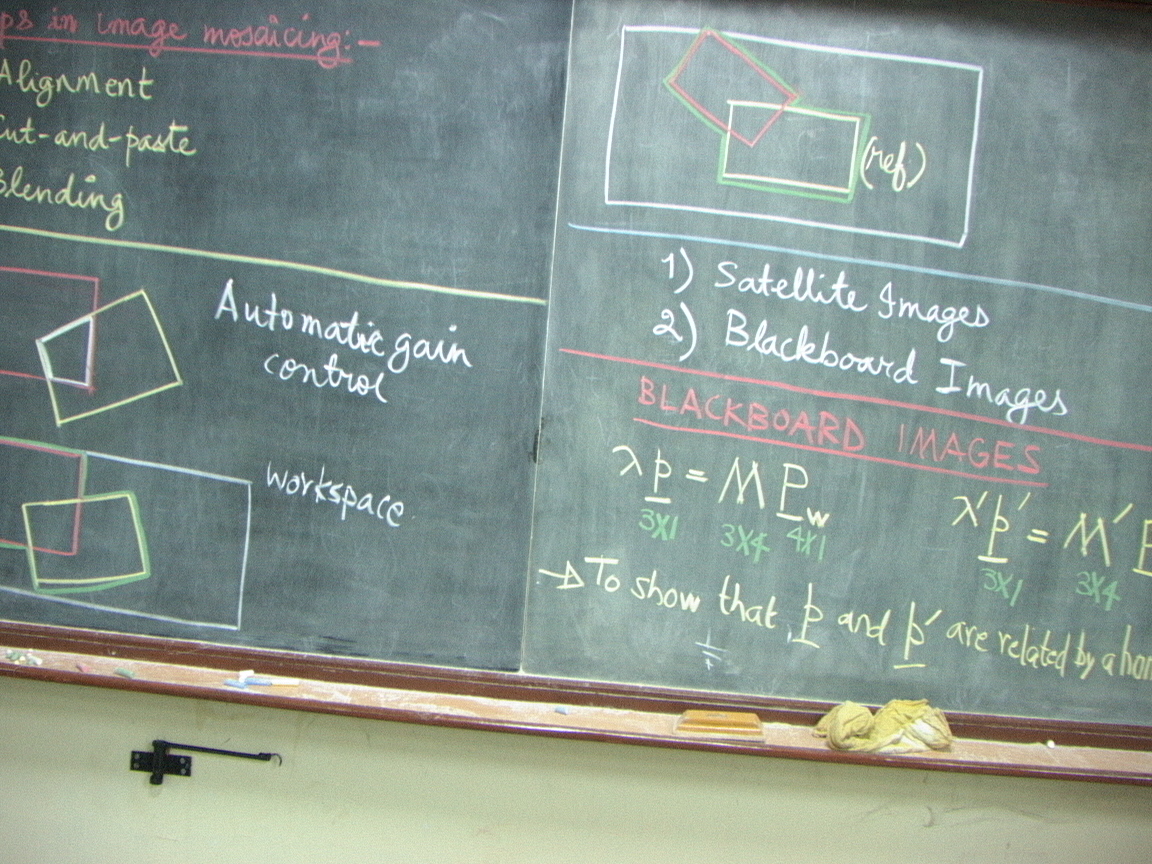 ps in image mosaicing:-
Alignment
Cut-and-paste
Blending
Automatic gain
control
workspace
(ref.)
1) Satellite Images
2) Blackboard Images
BLACKBOARD IMAGES
λp = M Pw
3X1 3X4 4X1
λ'p' = M' P
3X1 3X4
→ To show that p and p' are related by a hom